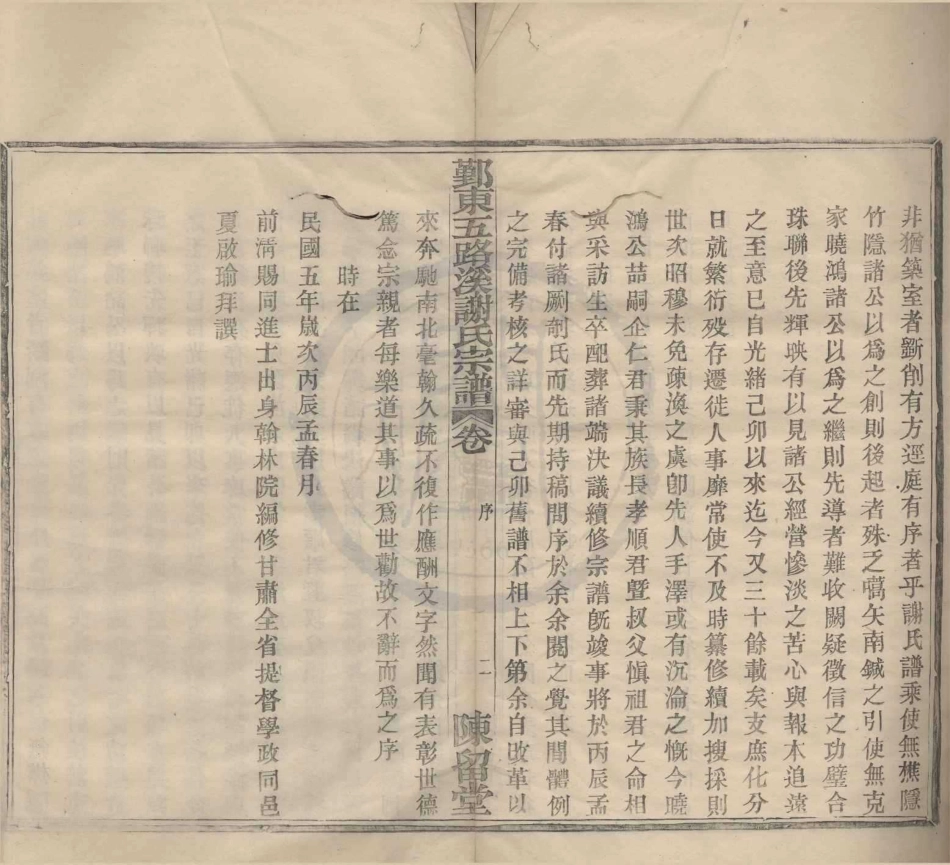 非猶築室者斵削有方逕庭有序者乎謝氏譜乘使無樵隱
竹隱諸公以爲之創則後起者殊乏嚆矢南鍼之引使無克
家曉鴻諸公以爲之繼則先導者難收闕疑徵信之功璧合
珠聯後先輝映有以見諸公經營慘淡之苦心與報本追遠
之至意已自光緒己卯以來迄今又三十餘載矣支庶化分
日就繁衍殁存遷徙人事靡常使不及時纂修續加搜採則
世次昭穆未免疎渙之虞卽先人手澤或有沉淪之慨今曉
鴻公喆嗣企仁君秉其族長孝順君曁叔父愼祖君之命相
與采訪生卒配葬諸端決議續修宗譜旣竣事將於丙辰孟
春付諸劂剞氏而先期持稿問序於余余閱之覺其間體例
之完備考核之詳審與己卯舊譜不相上下第余自改革以
鄞東五路溪謝氏宗譜 卷 序 二 陳留堂
來奔馳南北毫翰久疏不復作應酬文字然聞有表彰世德
篤念宗親者每樂道其事以爲世勸故不辭而爲之序
時在
民國五年嵗次丙辰孟春月
前淸賜同進士出身翰林院編修甘肅全省提督學政同邑
夏啟瑜拜譔